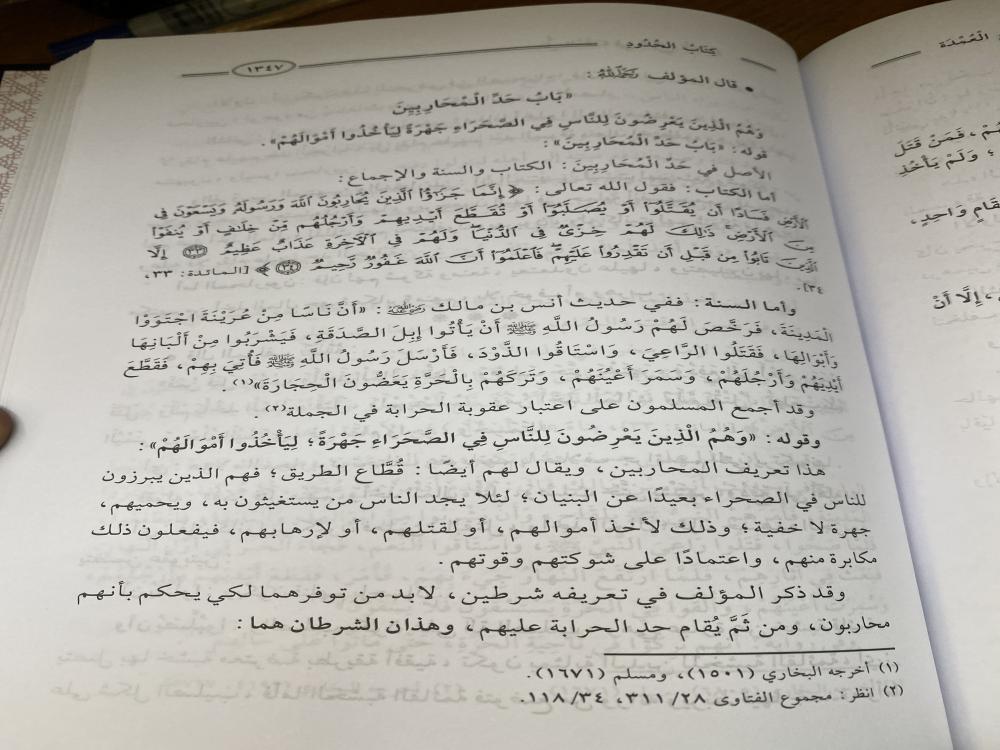 كِتَابُ الحُدُودِ
١٣٤٧
• قال المؤلف رَحِمَهُ اللهُ :
«بَابُ حَدِّ الْمُحَارِبِينَ
وَهُمُ الَّذِينَ يَعْرِضُونَ لِلنَّاسِ فِي الصَّحَرَاءِ جَهْرَةً لِيَأْخُذُوا أَمْوَالَهُمْ».
قوله: «بَابُ حَدِّ الْمُحَارِبِينَ»:
الأصل في حَدِّ الْمُحَارِبِينَ: الكتاب والسنة والإجماع:
أما الكتاب: فقول الله تعالى: ﴿ إِنَّمَا جَزَٰٓؤُا۟ ٱلَّذِينَ يُحَارِبُونَ ٱللَّهَ وَرَسُولَهُۥ وَيَسْعَوْنَ فِى
ٱلْأَرْضِ فَسَادًا أَن يُقَتَّلُوٓا۟ أَوْ يُصَلَّبُوٓا۟ أَوْ تُقَطَّعَ أَيْدِيهِمْ وَأَرْجُلُهُم مِّنْ خِلَٰفٍ أَوْ يُنفَوْا۟
مِنَ ٱلْأَرْضِ ذَٰلِكَ لَهُمْ خِزْىٌ فِى ٱلدُّنْيَا وَلَهُمْ فِى ٱلْءَاخِرَةِ عَذَابٌ عَظِيمٌ ۝٣٣ إِلَّا
ٱلَّذِينَ تَابُوا۟ مِن قَبْلِ أَن تَقْدِرُوا۟ عَلَيْهِمْ فَٱعْلَمُوٓا۟ أَنَّ ٱللَّهَ غَفُورٌ رَّحِيمٌ ۝٣٤ ﴾ [المائدة: ٣٣،
٣٤].
وأما السنة: ففي حديث أنس بن مالك رَضِيَ اللهُ عَنْهُ: «أَنَّ نَاسًا مِنْ عُرَيْنَةَ اجْتَوَوْا
الْمَدِينَةَ، فَرَخَّصَ لَهُمْ رَسُولُ اللَّهِ ﷺ أَنْ يَأْتُوا إِبِلَ الصَّدَقَةِ، فَيَشْرَبُوا مِنْ أَلْبَانِهَا
وَأَبْوَالِهَا، فَقَتَلُوا الرَّاعِيَ، وَاسْتَاقُوا الذَّوْدَ، فَأَرْسَلَ رَسُولُ اللَّهِ ﷺ فَأُتِيَ بِهِمْ، فَقَطَّعَ
أَيْدِيَهُمْ وَأَرْجُلَهُمْ، وَسَمَرَ أَعْيُنَهُمْ، وَتَرَكَهُمْ بِالْحَرَّةِ يَعَضُّونَ الْحِجَارَةَ»(١).
وقد أجمع المسلمون على اعتبار عقوبة الحرابة في الجملة(٢).
وقوله: «وَهُمُ الَّذِينَ يَعْرِضُونَ لِلنَّاسِ فِي الصَّحَرَاءِ جَهْرَةً؛ لِيَأْخُذُوا أَمْوَالَهُمْ»:
هذا تعريف المحاربين، ويقال لهم أيضًا: قُطَّاع الطريق؛ فهم الذين يبرزون
للناس في الصحراء بعيدًا عن البنيان؛ لئلا يجد الناس من يستغيثون به، ويحميهم،
جهرة لا خفية؛ وذلك لأخذ أموالهم، أو لقتلهم، أو لإرهابهم، فيفعلون ذلك
مكابرة منهم، واعتمادًا على شوكتهم وقوتهم.
وقد ذكر المؤلف في تعريفه شرطين، لابد من توفرهما لكي يحكم بأنهم
محاربون، ومن ثَمَّ يُقام حد الحرابة عليهم، وهذان الشرطان هما:
(١) أخرجه البخاري (١٥٠١)، ومسلم (١٦٧١).
(٢) انظر: مجموع الفتاوى ٣١١/٢٨، ١١٨/٣٤.
الْعُمْدَة
، فَمَنْ قَتَلَ
؛ وَلَمْ يَأْخُذِ
مَقَامٍ وَاحِدٍ،
، إِلَّا أَنْ